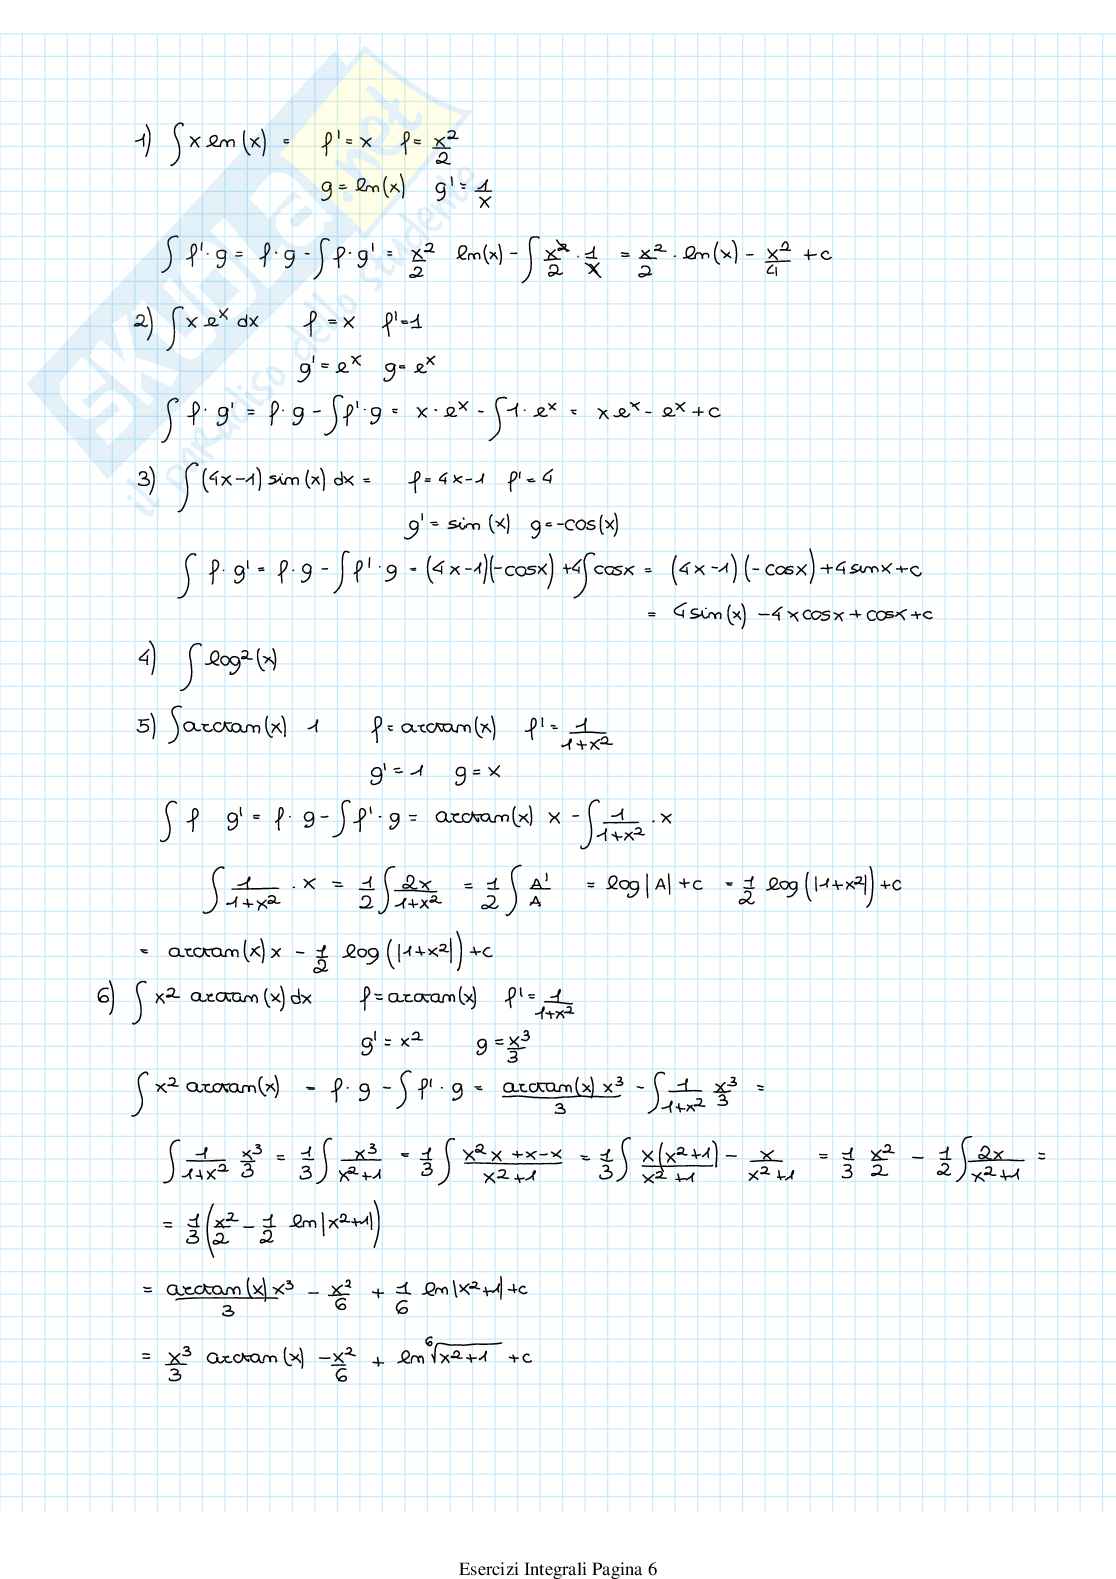 1) ∫ x ln(x) = f' = x f = x²/2
g = ln(x) g' = 1/x
∫ f'·g = f·g - ∫ f·g' = x²/2 ln(x) - ∫ x²/2 · 1/x = x²/2 · ln(x) - x²/4 + c
2) ∫ x eˣ dx f = x f' = 1
g' = eˣ g = eˣ
∫ f·g' = f·g - ∫ f'·g = x·eˣ - ∫ 1·eˣ = xeˣ - eˣ + c
3) ∫ (4x-1) sin(x) dx = f = 4x-1 f' = 4
g' = sin(x) g = -cos(x)
∫ f·g' = f·g - ∫ f'·g = (4x-1)(-cosx) + 4∫ cosx = (4x-1)(-cosx) + 4sinx + c
= 4sin(x) - 4xcosx + cosx + c
4) ∫ log²(x)
5) ∫ arctan(x) 1 f = arctan(x) f' = 1/(1+x²)
g' = 1 g = x
∫ f g' = f·g - ∫ f'·g = arctan(x) x - ∫ 1/(1+x²) · x
∫ 1/(1+x²) · x = 1/2 ∫ 2x/(1+x²) = 1/2 ∫ A'/A = log|A| + c = 1/2 log(|1+x²|) + c
= arctan(x)x - 1/2 log(|1+x²|) + c
6) ∫ x² arctan(x)dx f = arctan(x) f' = 1/(1+x²)
g' = x² g = x³/3
∫ x² arctan(x) = f·g - ∫ f'·g = arctan(x)x³/3 - ∫ 1/(1+x²) x³/3 =
∫ 1/(1+x²) x³/3 = 1/3 ∫ x³/(x²+1) = 1/3 ∫ (x²x+x-x)/(x²+1) = 1/3 ∫ x(x²+1)/(x²+1) - x/(x²+1) = 1/3 x²/2 - 1/2 ∫ 2x/(x²+1) =
= 1/3 (x²/2 - 1/2 ln|x²+1|)
= arctan(x)x³/3 - x²/6 + 1/6 ln|x²+1| + c
= x³/3 arctan(x) - x²/6 + ln ⁶√(x²+1) + c
Esercizi Integrali Pagina 6
SKUOLA.net
il paradiso dello studente